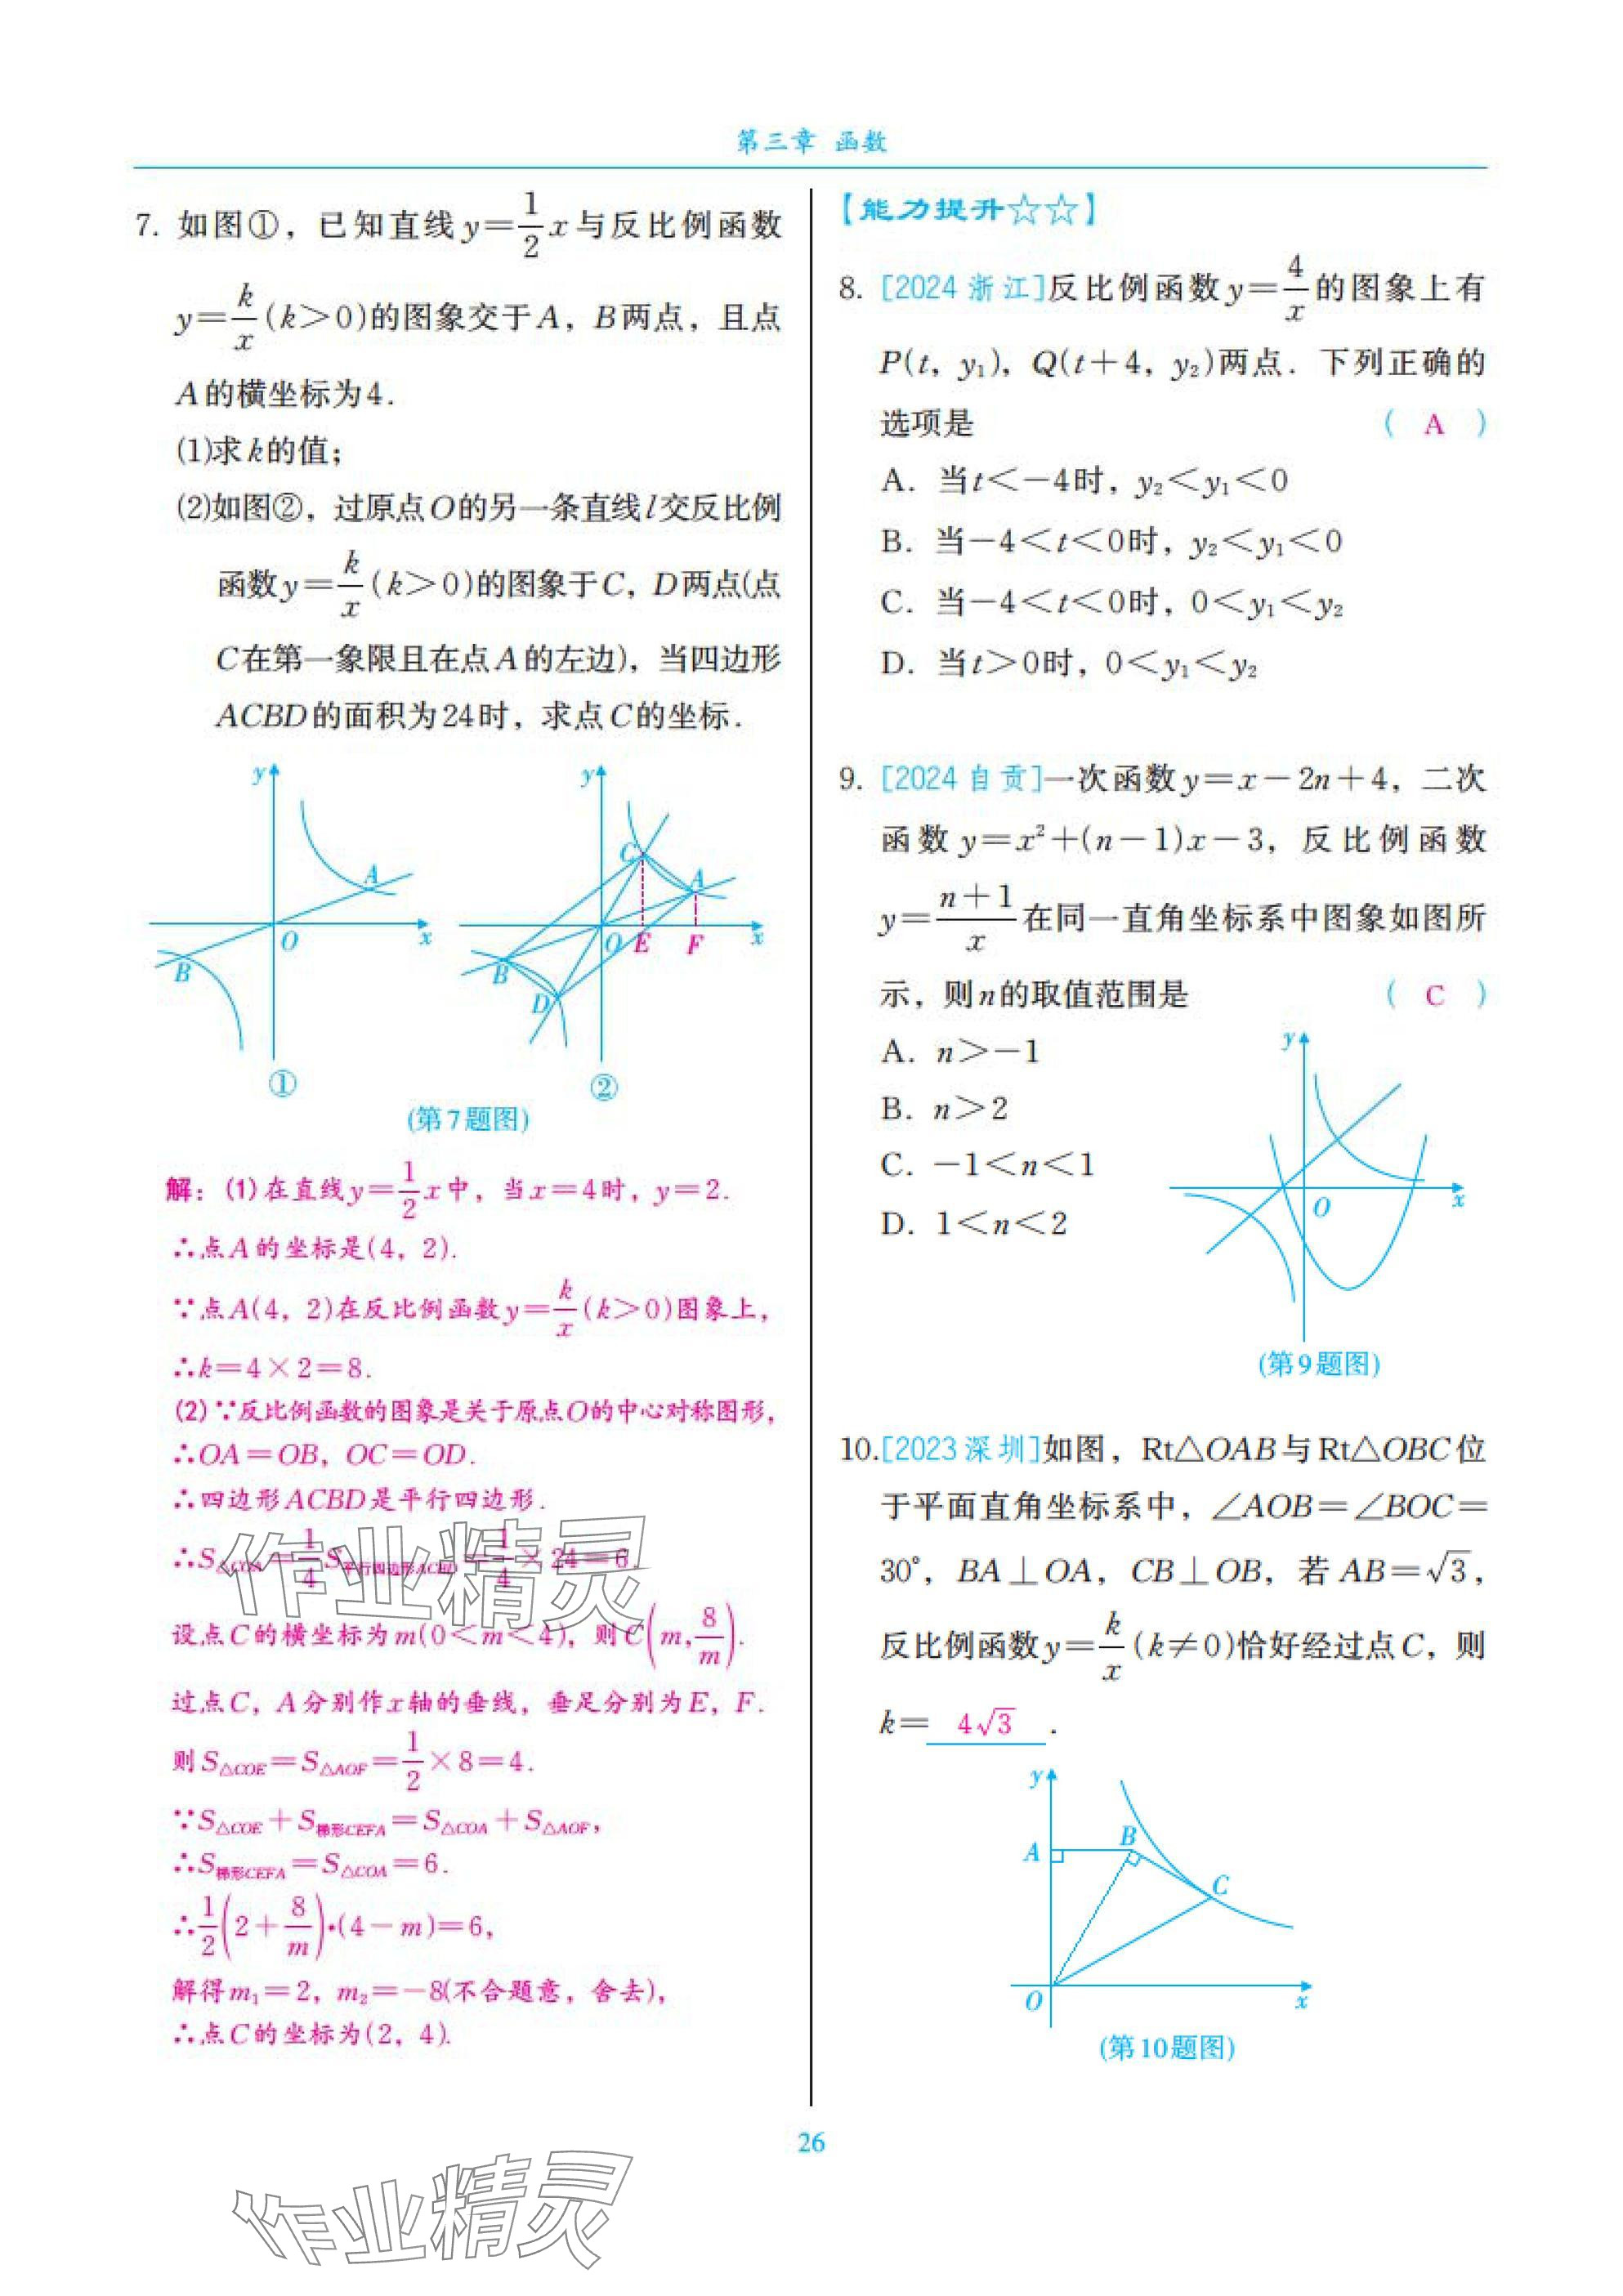 第三章 函数
7. 如图①，已知直线y=\frac{1}{2}x与反比例函数
y=\frac{k}{x}(k>0)的图象交于A，B两点，且点
A的横坐标为4.
(1)求k的值；
(2)如图②，过原点O的另一条直线l交反比例
函数y=\frac{k}{x}(k>0)的图象于C，D两点(点
C在第一象限且在点A的左边)，当四边形
ACBD的面积为24时，求点C的坐标.
y
A
O
x
B
①
y
C
A
O
E
F
x
B
D
②
(第7题图)
解：(1)在直线y=\frac{1}{2}x中，当x=4时，y=2.
∴点A的坐标是(4，2).
∵点A(4，2)在反比例函数y=\frac{k}{x}(k>0)图象上，
∴k=4×2=8.
(2)∵反比例函数的图象是关于原点O的中心对称图形，
∴OA=OB，OC=OD.
∴四边形ACBD是平行四边形.
∴S△COA=\frac{1}{4}S平行四边形ACBD=\frac{1}{4}×24=6.
设点C的横坐标为m(0<m<4)，则C(m,\frac{8}{m}).
过点C，A分别作x轴的垂线，垂足分别为E，F.
则S△COE=S△AOF=\frac{1}{2}×8=4.
∵S△COE+S梯形CEFA=S△COA+S△AOF，
∴S梯形CEFA=S△COA=6.
∴\frac{1}{2}(2+\frac{8}{m})·(4-m)=6，
解得m₁=2，m₂=-8(不合题意，舍去)，
∴点C的坐标为(2，4).
【能力提升☆☆】
8. [2024 浙江]反比例函数y=\frac{4}{x}的图象上有
P(t，y₁)，Q(t+4，y₂)两点. 下列正确的
选项是 ( A )
A. 当t<-4时，y₂<y₁<0
B. 当-4<t<0时，y₂<y₁<0
C. 当-4<t<0时，0<y₁<y₂
D. 当t>0时，0<y₁<y₂
9. [2024 自贡]一次函数y=x-2n+4，二次
函数y=x²+(n-1)x-3，反比例函数
y=\frac{n+1}{x}在同一直角坐标系中图象如图所
示，则n的取值范围是 ( C )
A. n>-1
B. n>2
C. -1<n<1
D. 1<n<2
y
O
x
(第9题图)
10.[2023 深圳]如图，Rt△OAB与Rt△OBC位
于平面直角坐标系中，∠AOB=∠BOC=
30°，BA⊥OA，CB⊥OB，若AB=√3，
反比例函数y=\frac{k}{x}(k≠0)恰好经过点C，则
k= 4√3 .
y
A
B
C
O
x
(第10题图)
26
作业精灵
作业精灵